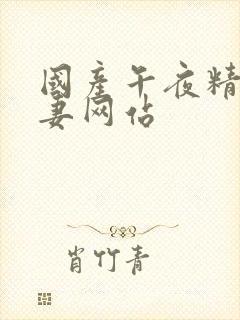 國產午夜精
妻网站
肖竹青